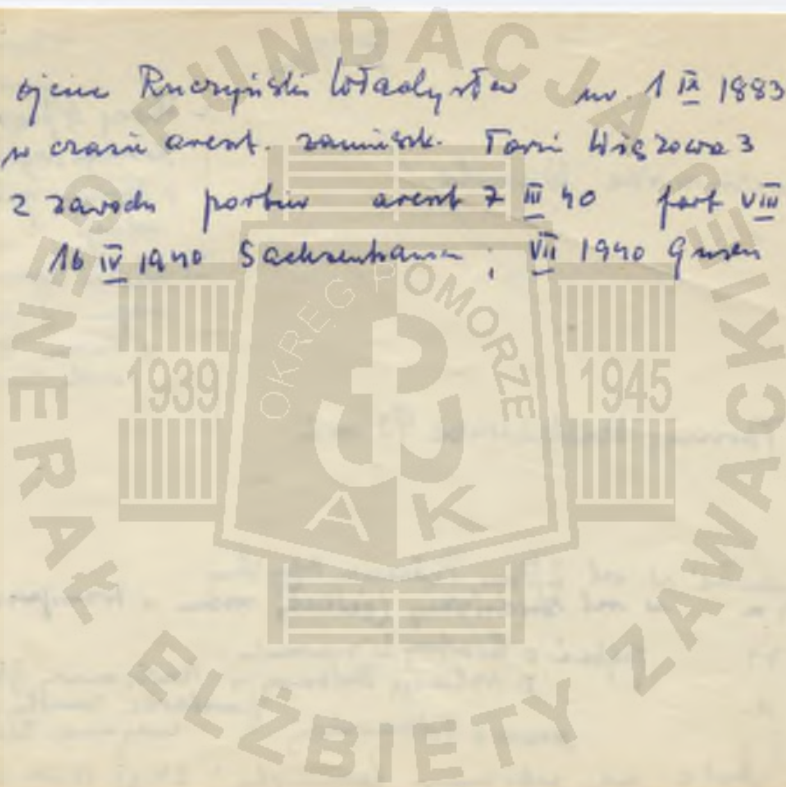 ojciec Ruczyński Władysław ur. 1 IX 1883
w czasie areszt. zamieszk. Toruń Wiązowa 3
z zawodu portier areszt 7 III 40 fort VIII
16 IV 1940 Sachsenhausen ; VII 1940 Gusen
FUNDACJA
GENERAŁ ELŻBIETY ZAWACKIEJ
OKRĘG POMORZE
1939 1945
AK